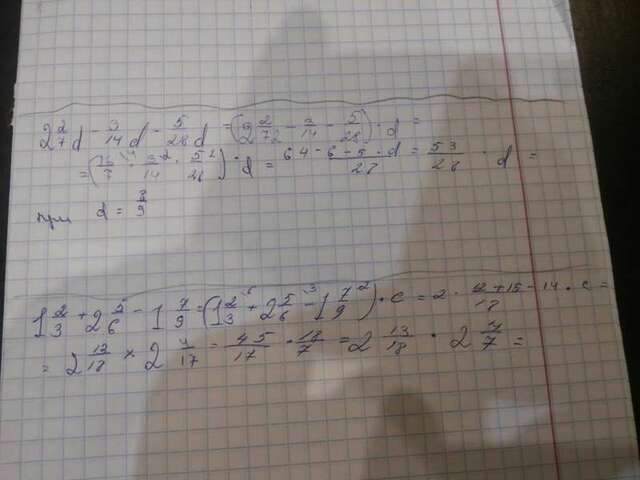 2 2/7 d - 3/14 d - 5/28 d = (2 2/7 - 3/14 - 5/28) · d =
= (16/7 - 3/14 - 5/28) · d = 64-6-5/28 · d = 53/28 · d =
при d = 7/9
1 2/3 + 2 5/6 - 1 7/9 = (1 2/3 + 2 5/6 - 1 7/9) · c = 2 · 12+15-14/18 · c =
= 2 13/18 × 2 4/17 = 45/17 · 18/7 = 2 13/18 · 2 4/7 =